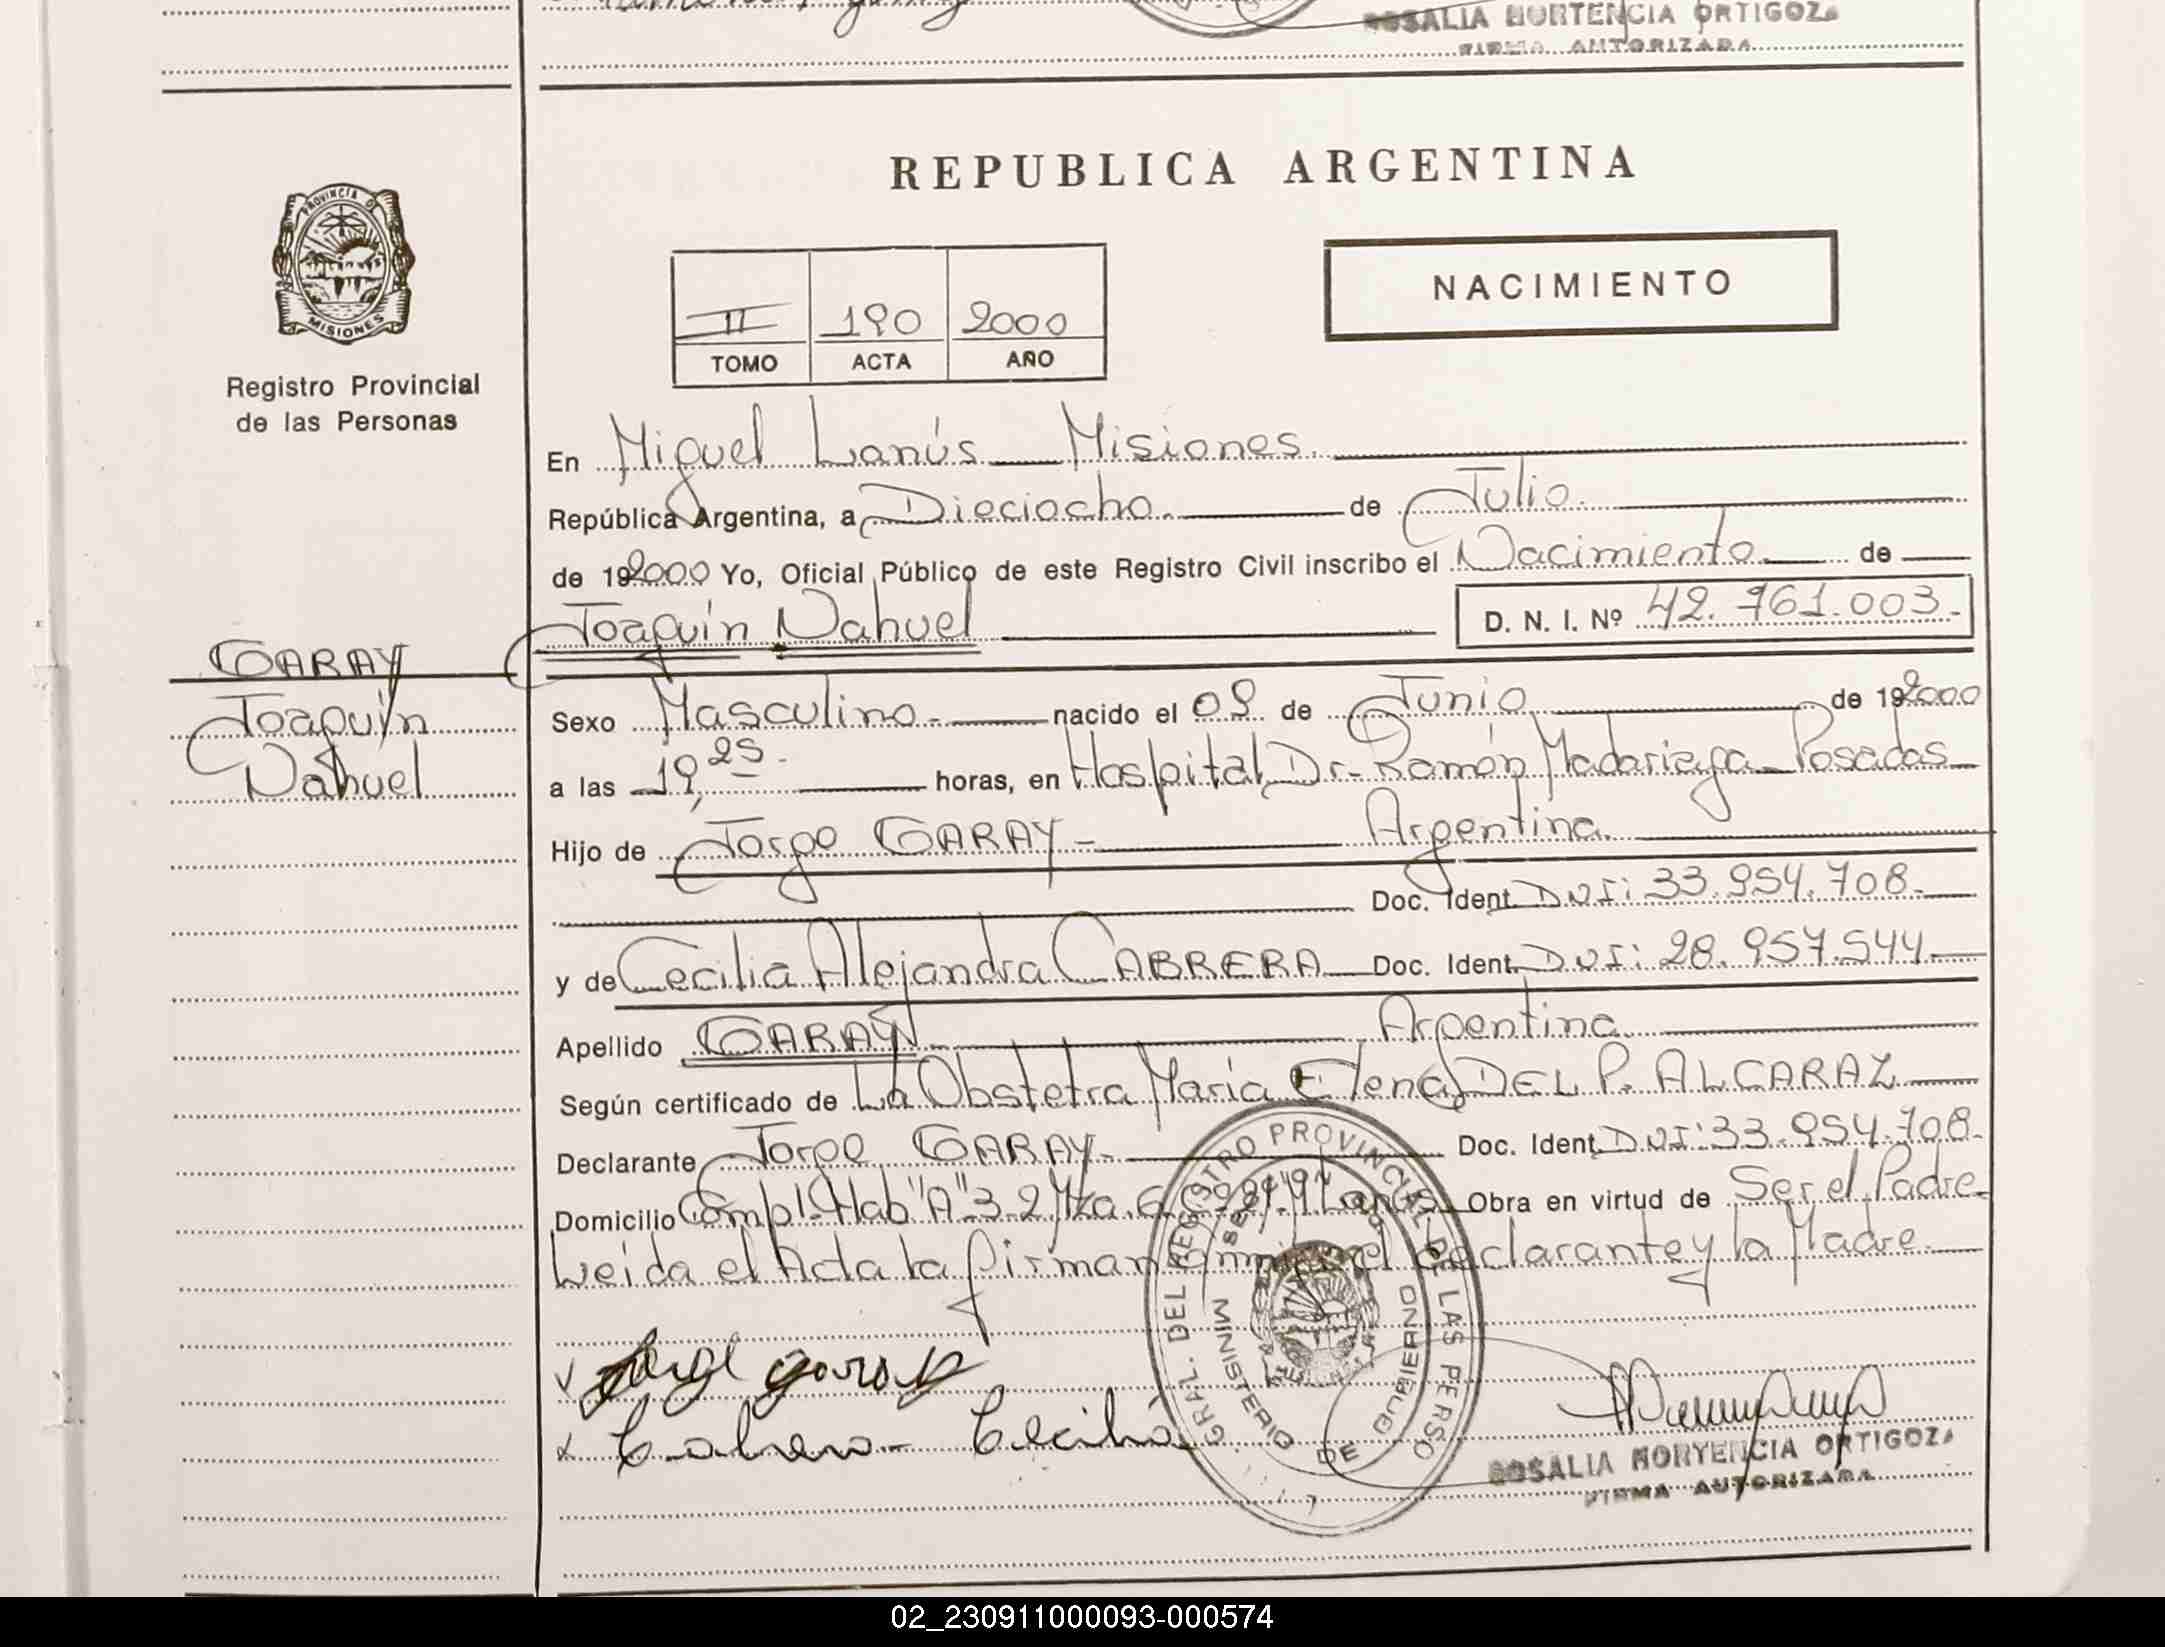 ROSALIA HORTENCIA ORTIGOZA
FIRMA AUTORIZADA
PROVINCIA DE
MISIONES
Registro Provincial
de las Personas
REPUBLICA ARGENTINA
NACIMIENTO
II 190 2000
TOMO ACTA AÑO
En Miguel Lanús Misiones.
República Argentina, a Dieciocho. de Julio.
de 192000 Yo, Oficial Público de este Registro Civil inscribo el Nacimiento de
Joaquín Nahuel D. N. I. Nº 42.761.003.-
GARAY
Joaquín
Nahuel
Sexo Masculino.- nacido el 09 de Junio de 192000
a las 19,25.- horas, en Hospital Dr. Ramón Madariaga Posadas
Hijo de Jorge GARAY- Argentina.
Doc. Ident. DNI: 33.954.708.-
y de Cecilia Alejandra CABRERA Doc. Ident. DNI: 28.957.544.-
Apellido GARAY.- Argentina
Según certificado de La Obstetra María Elena DEL P. ALCARAZ
Declarante Jorge GARAY.- Doc. Ident. DNI: 33.954.708.
Domicilio Compl. Hab "A" 3-2 Mza. Lanús Obra en virtud de Ser el Padre
Leida el Acta la firman conmigo el declarante y la Madre.
Jorge garay
Cabrera - Cecilia
GRAL. DEL REGISTRO PROVINCIAL DE LAS PERSO
MINISTERIO DE GOBIERNO
ROSALIA HORTENCIA ORTIGOZA
FIRMA AUTORIZADA
02_230911000093-000574